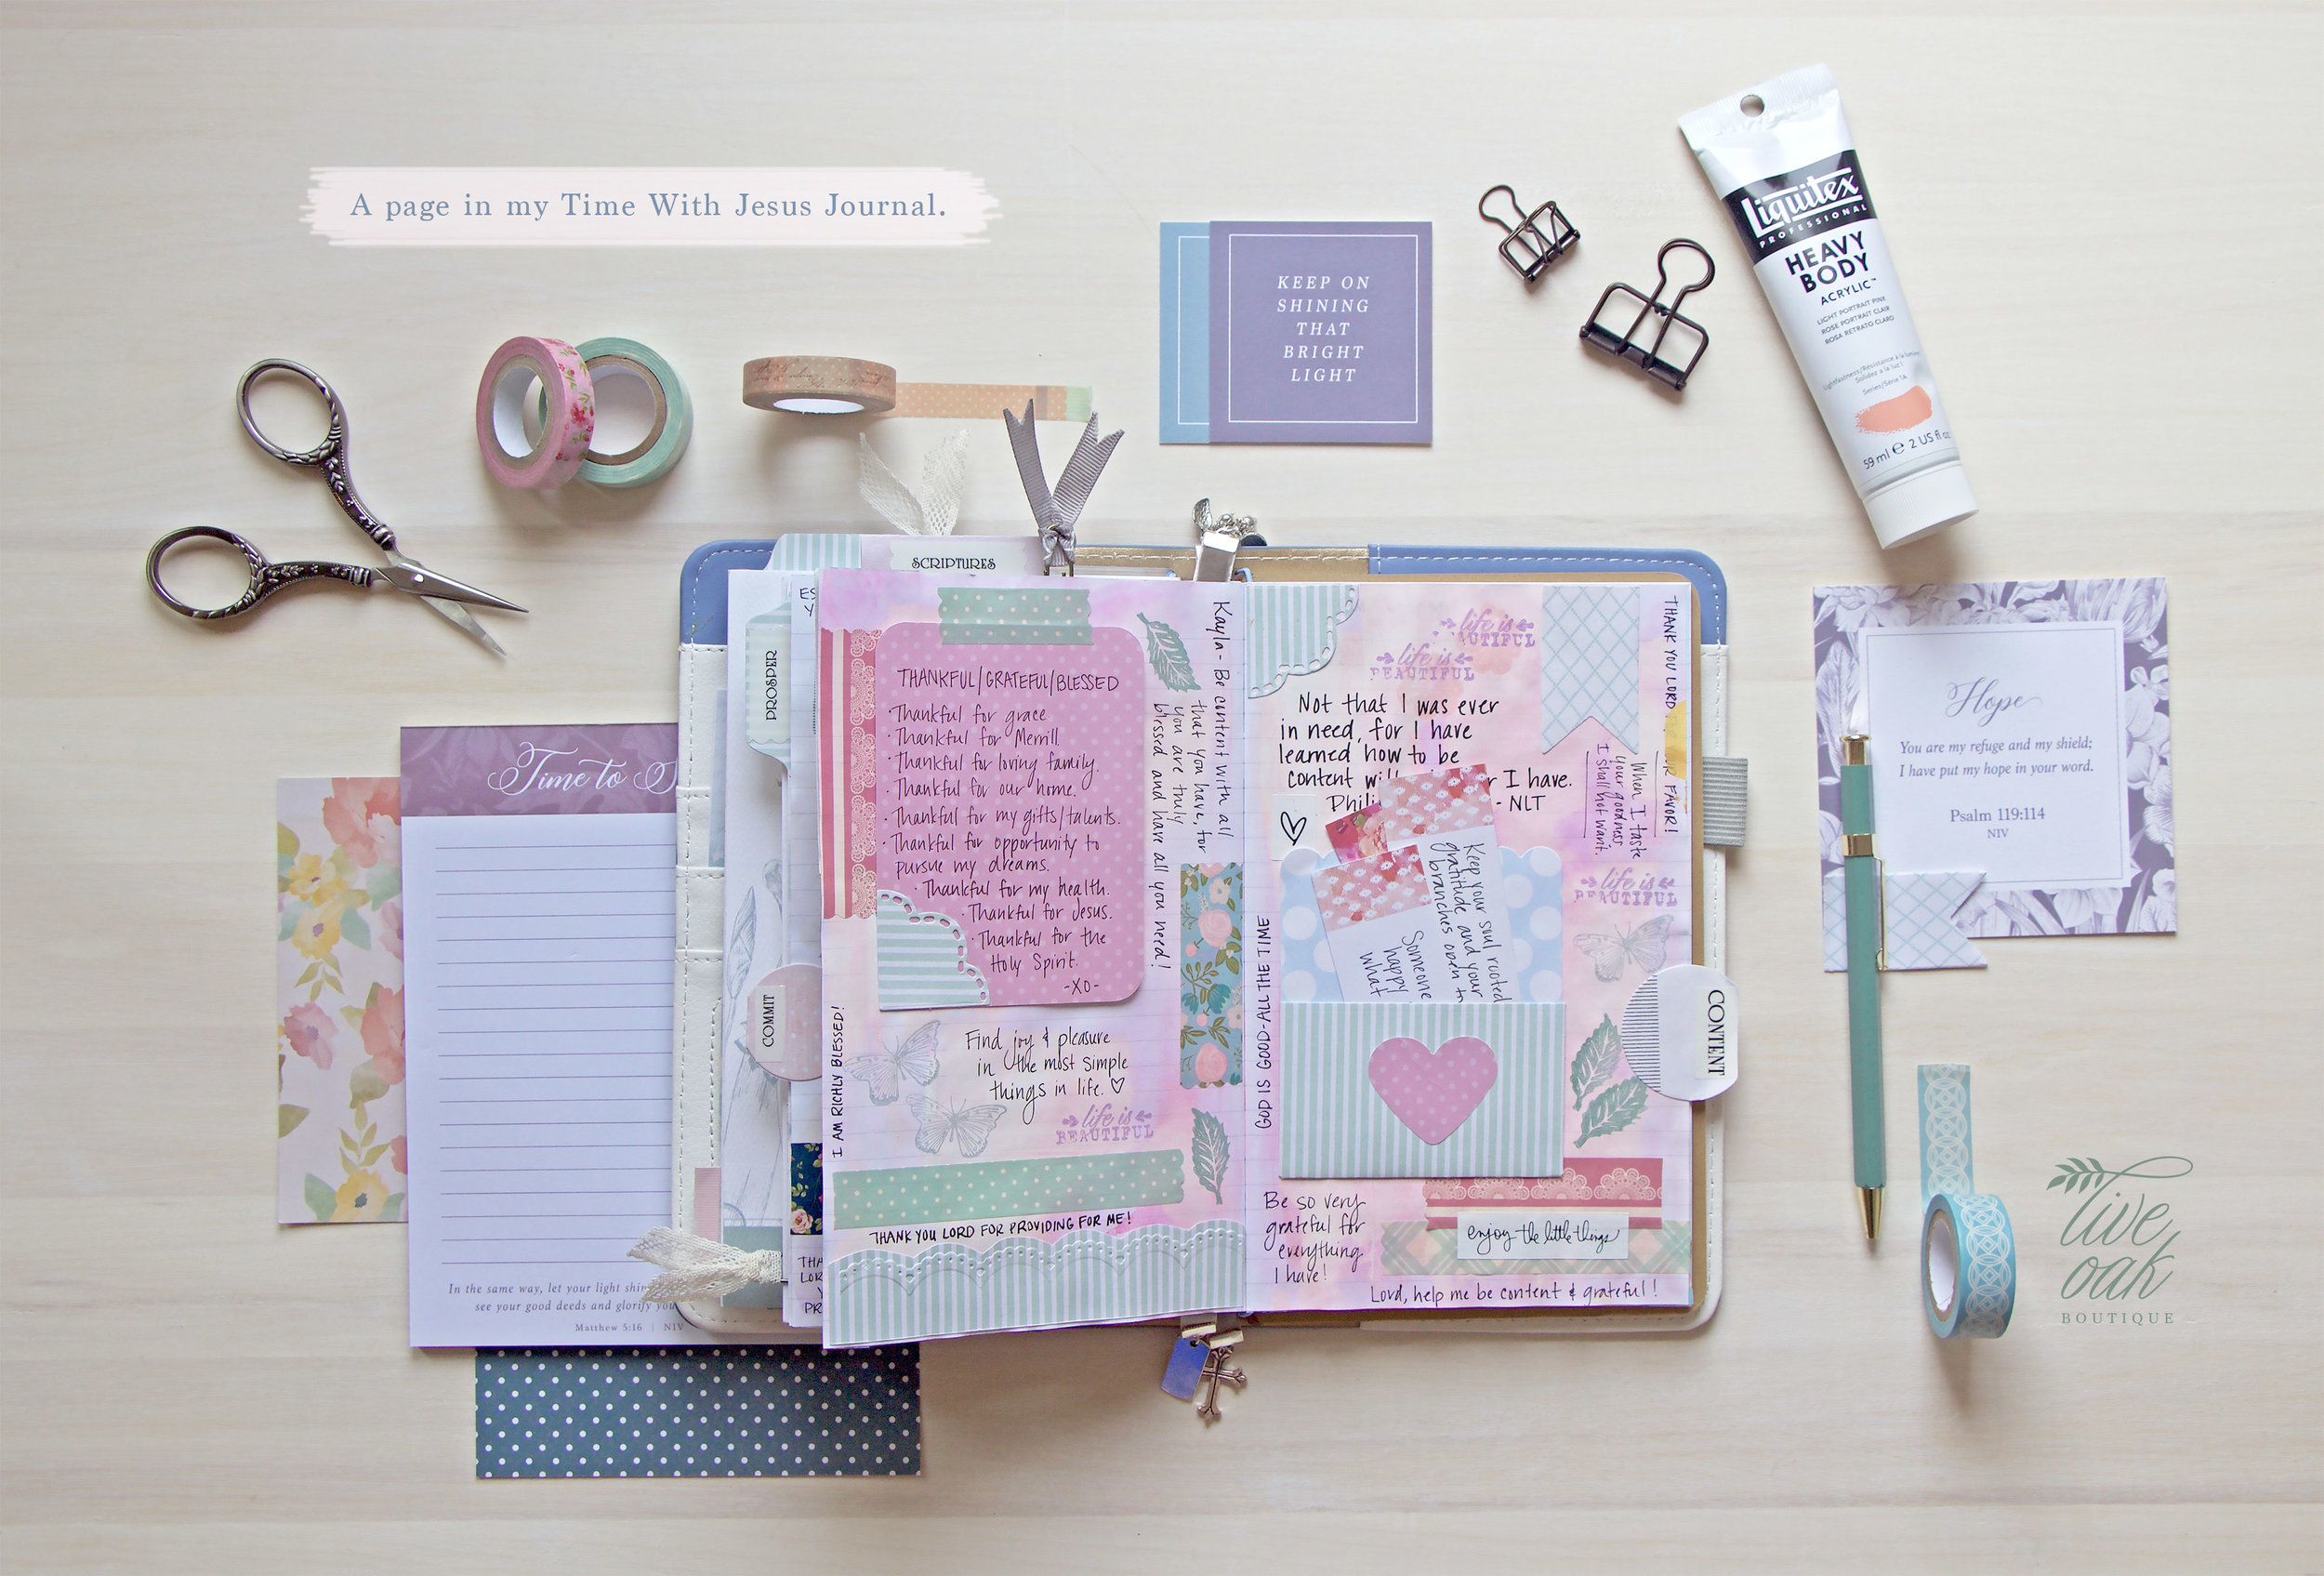 A page in my Time With Jesus Journal.
KEEP ON
SHINING
THAT
BRIGHT
LIGHT
Liquitex
PROFESSIONAL
HEAVY
BODY
ACRYLIC™
LIGHT PORTRAIT PINK
ROSE PORTRAIT CLAIR
ROSA RETRATO CLARO
Lightfastness/Résistance à la lumière
Solidez a la luz I
Series/Série 1A
59 ml ℮ 2 US fl oz
SCRIPTURES
PROSPER
COMMIT
ES
Y
THANKFUL/GRATEFUL/BLESSED
·Thankful for grace
·Thankful for Merrill.
·Thankful for loving family.
·Thankful for our home.
·Thankful for my gifts/talents.
·Thankful for opportunity to
pursue my dreams.
·Thankful for my health.
·Thankful for Jesus.
·Thankful for the
Holy Spirit.
-XO-
Kayla - Be content with all
that you have, for
you are truly
blessed and have all you need!
I AM RICHLY BLESSED!
Find joy & pleasure
in the most simple
things in life.
life is
BEAUTIFUL
THANK YOU LORD FOR PROVIDING FOR ME!
THA
LOR
Y
PR
life is
BEAUTIFUL
life is
BEAUTIFUL
Not that I was ever
in need, for I have
learned how to be
content I have.
- NLT
THANK YOU LORD FAVOR!
When I taste
your goodness
I shall not want.
life is
BEAUTIFUL
GOD IS GOOD-ALL THE TIME
Keep your soul rooted
gratitude and your
branches open to
Someone
happy
what
CONTENT
Be so very
grateful for
everything
I have!
enjoy the little things
Lord, help me be content & grateful!
Time to S
In the same way, let your light shin
see your good deeds and glorify you
Matthew 5:16 | NIV
Hope
You are my refuge and my shield;
I have put my hope in your word.
Psalm 119:114
NIV
live
oak
BOUTIQUE